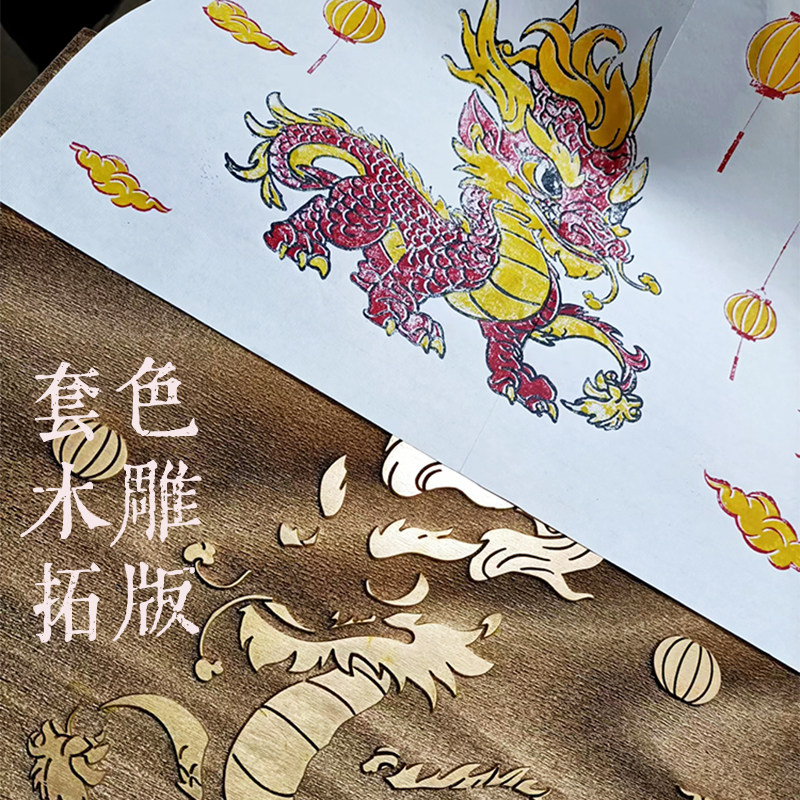 套色
木雕
拓版